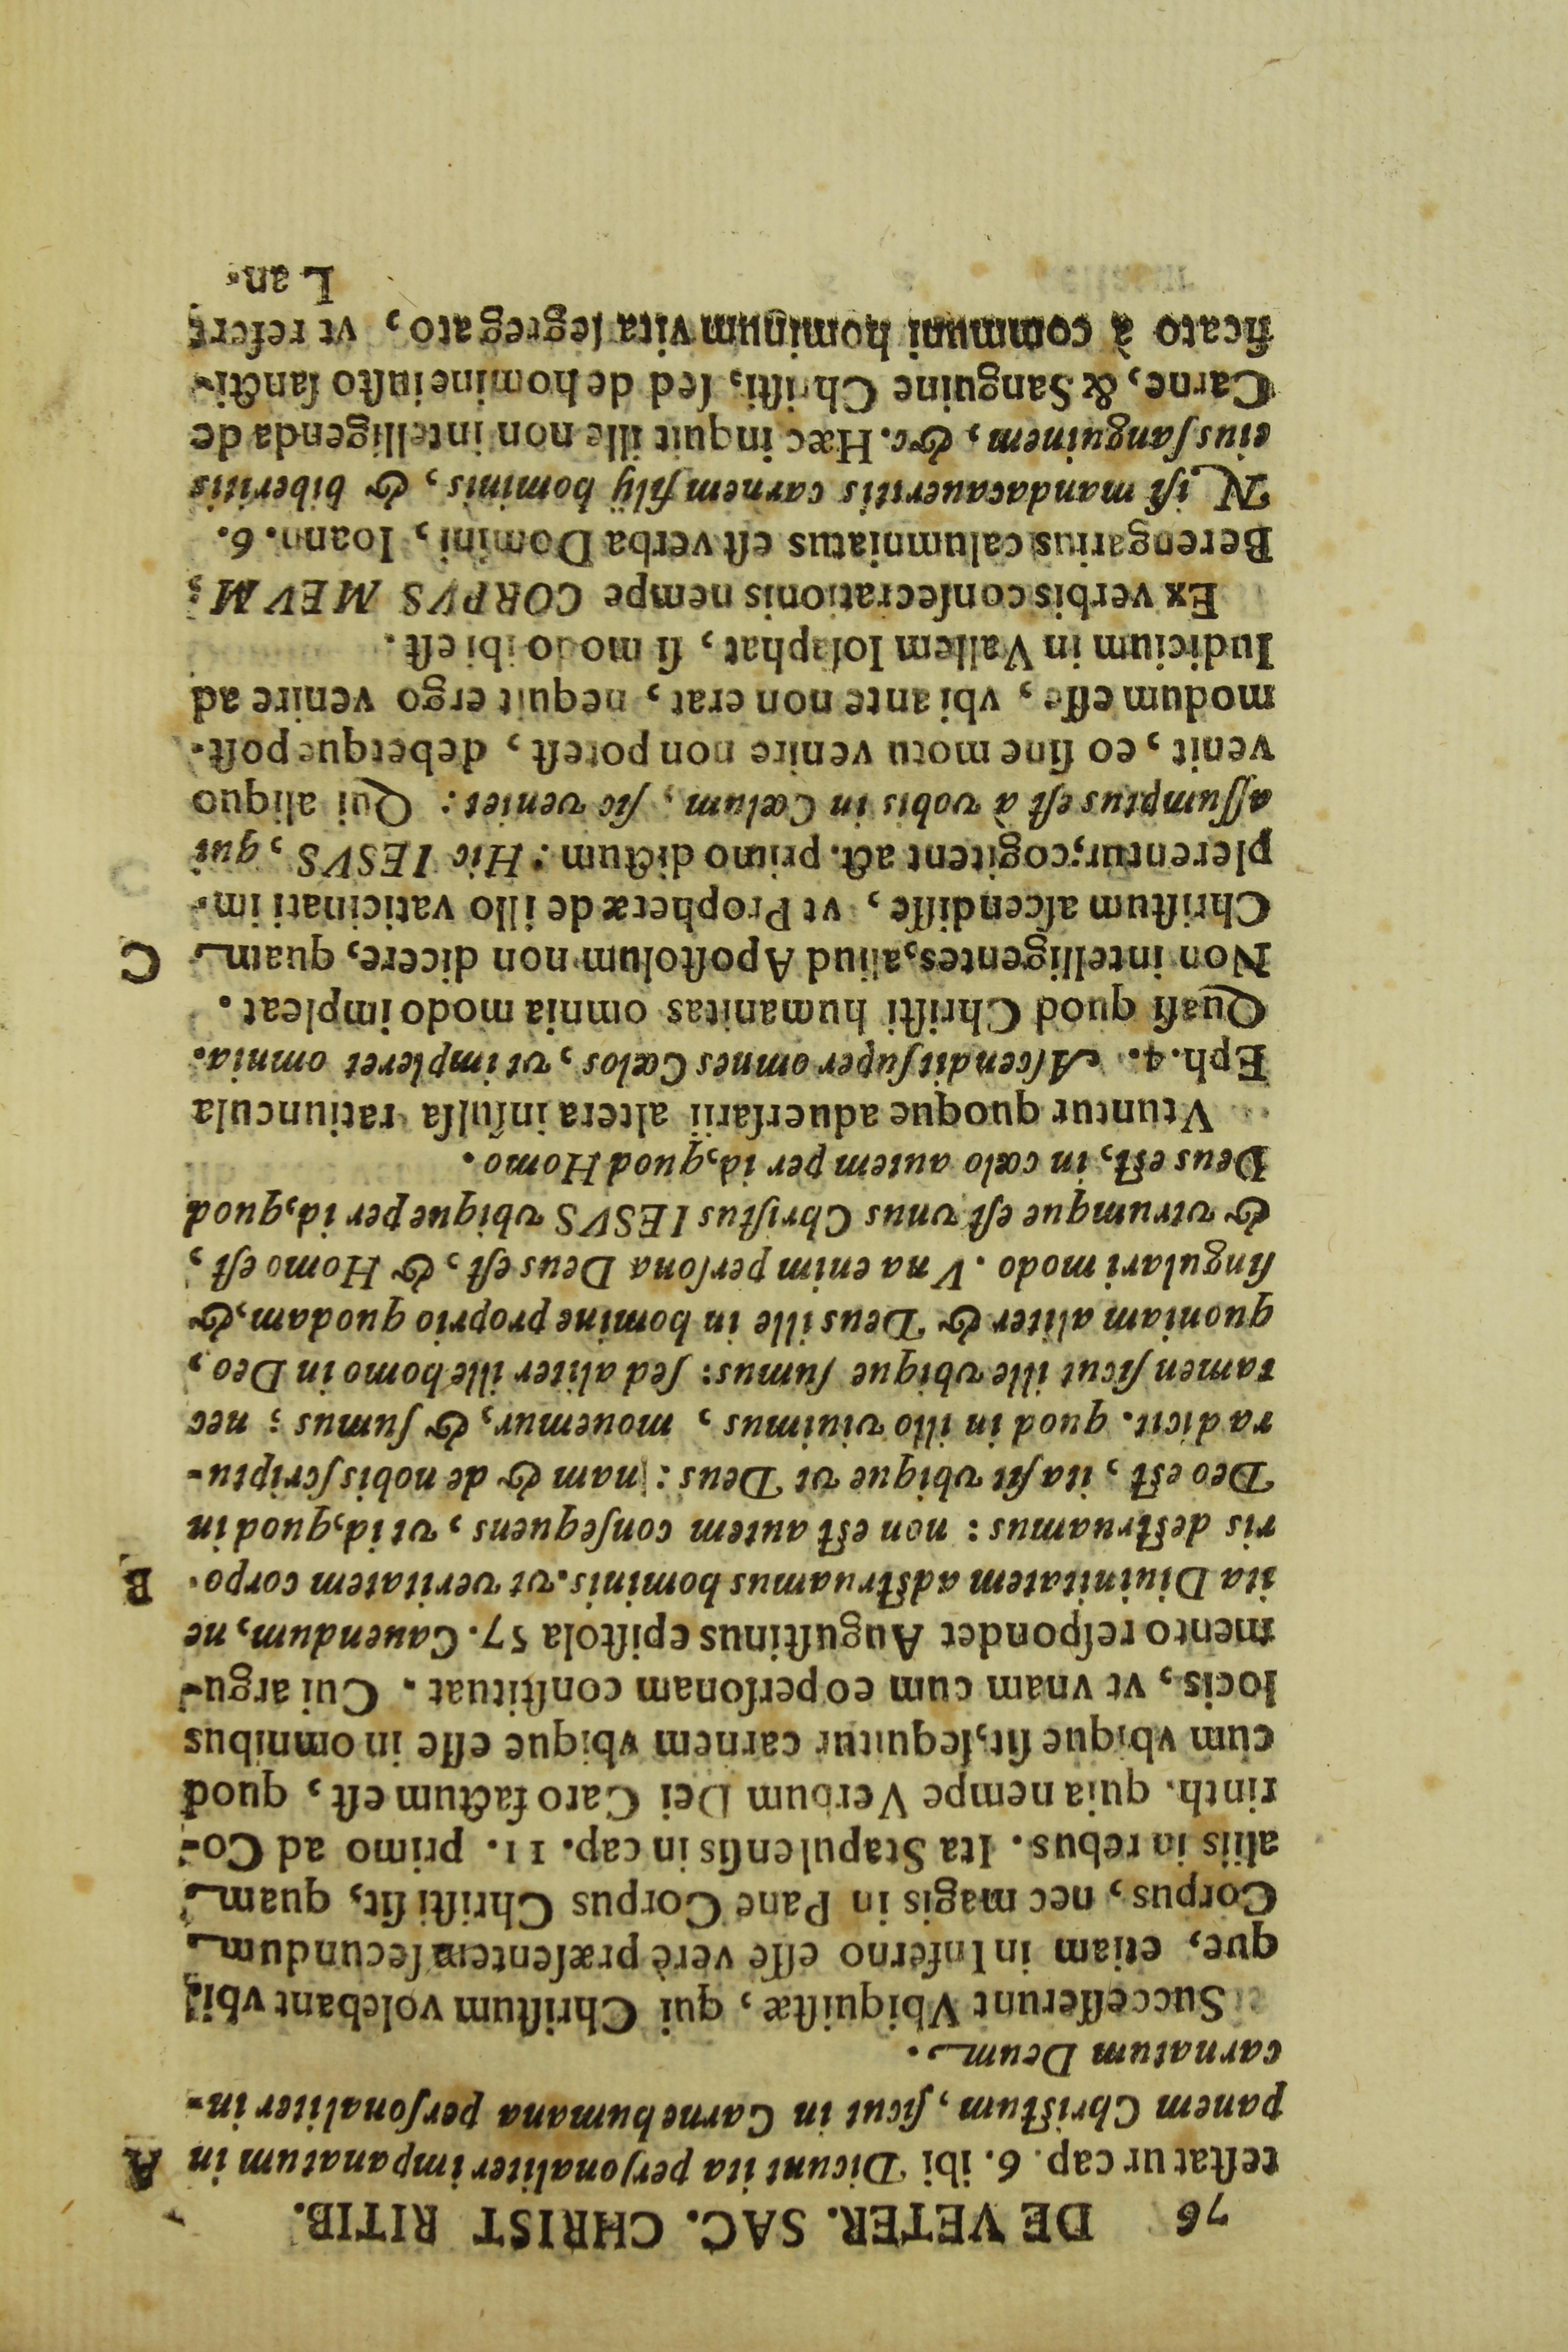 76 DE VETER. SAC. CHRIST RITIB.
teſtatur cap. 6. ibi Dicunt ita perſonaliter impanatum in A
panem Chriſtum, ſicut in Carne humana perſonaliter in-
carnatum Deum.
Succeſſerunt Vbiquiſtæ, qui Chriſtum volebant vbi
que, etiam in Inferno eſſe verè præſentem ſecundum
Corpus, nec magis in Pane Corpus Chriſti ſit, quam
aliis in rebus. Ita Stapulenſis in cap. 11. primo ad Co-
rinth. quia nempe Verbum Dei Caro factum eſt, quod
cum vbique ſit, ſequitur carnem vbique eſſe in omnibus
locis, vt vnam cum eo perſonam conſtituat. Cui argu-
mento reſpondet Auguſtinus epiſtola 57. Cauendum, ne
ita Diuinitatem adſtruamus hominis. vt veritatem corpo- B
ris deſtruamus: non eſt autem conſequens, vt id, quod in
Deo eſt, ita ſit vbique vt Deus: nam & de nobis ſcriptu-
ra dicit. quod in illo viuimus, mouemur, & ſumus; nec
tamen ſicut ille vbique ſumus: ſed aliter ille homo in Deo,
quoniam aliter & Deus ille in homine proprio quodam, &
ſingulari modo. Vna enim perſona Deus eſt, & Homo eſt,
& vtrumque eſt vnus Chriſtus IESVS vbique per id, quod
Deus eſt, in cœlo autem per id, quod Homo.
Vtuntur quoque aduerſarii altera inſulſa ratiuncula
Eph. 4. Aſcendit ſuper omnes Cœlos, vt impleret omnia.
Quaſi quod Chriſti humanitas omnia modo impleat.
Non intelligentes, aliud Apoſtolum non dicere, quam C
Chriſtum aſcendiſſe, vt Prophetæ de illo vaticinati im-
plerentur; cogitent act. primo dictum: Hic IESVS, qui
aſſumptus eſt à vobis in Cœlum, ſic veniet: Qui aliquo
venit, eo ſine motu venire non poteſt, debetque poſt-
modum eſſe, vbi ante non erat, nequit ergo venire ad
Iudicium in Vallem Ioſaphat, ſi modo ibi eſt.
Ex verbis conſecrationis nempe CORPVS MEVM;
Berengarius calumniatus eſt verba Domini, Ioann. 6.
Niſi mandacaueritis carnem filÿ hominis, & biberitis
eius ſanguinem, &c. Hæc inquit ille non intelligenda de
Carne, & Sanguine Chriſti, ſed de homine iuſto ſancti-
ficato à communi hominum vita ſegregato, vt refert
Lan-